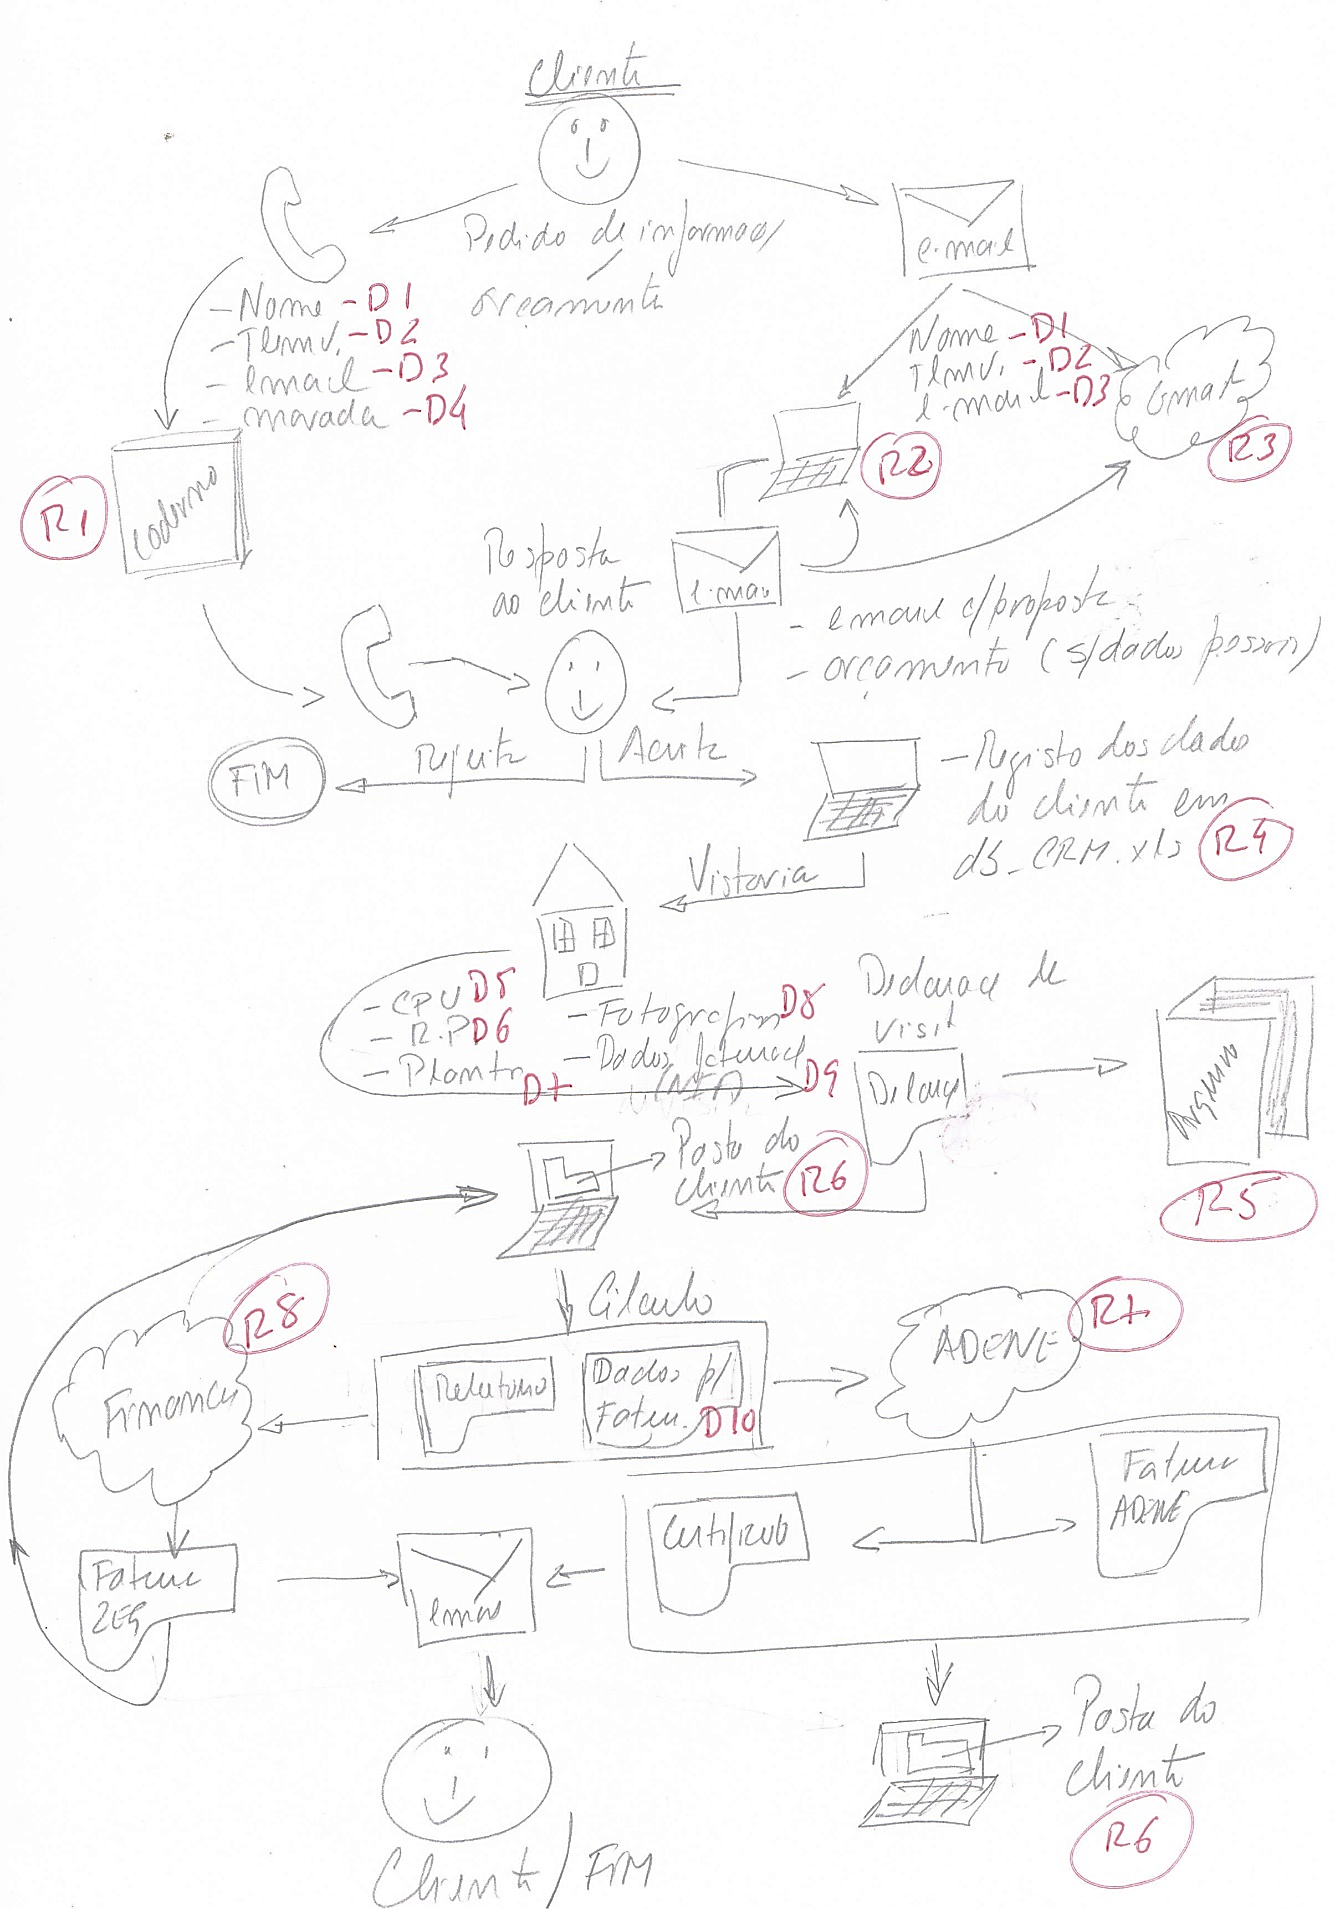 Cliente
Pedido de informação/
orçamento
e-mail
- Nome - D1
- Tlmv. - D2
- email - D3
- morada - D4
Nome - D1
Tlmv. - D2
e-mail - D3
Gmail
R3
R2
R1
Caderno
Resposta
ao cliente
e-mail
- email c/proposta
- orçamento (s/dados pessoais)
Rejeita
Aceita
FIM
- Registo dos dados
do cliente em
CRM.xls
R4
Vistoria
- CPU D5
- R.P D6
- Planta D7
- Fotografias D8
- Dados faturação
(NIF) D9
Declaração de
visita
Declaraç
Arquivo
R5
Pasta do
cliente
R6
Cálculo
R8
Finanças
Relatório
Dados p/
Fatur. D10
ADENE
R7
Fatura
ADENE
Certificado
Fatura
email
Pasta do
cliente
R6
Cliente/FIM